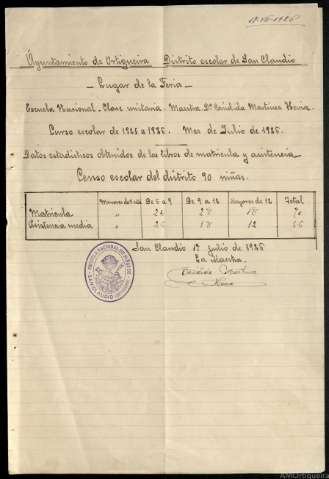 17-VII-1926
Ayuntamiento de Ortigueira Distrito escolar de San Claudio
Lugar de la Feria
Escuela Nacional - Clase unitaria. Maestra Dª Cándida Martínez
Curso escolar de 1925 a 1926. Mes de Julio de 1926.
Datos estadísticos obtenidos de los libros de matrícula y asistencia
Censo escolar del distrito 90 niñas.
De 6 a 9 De 9 a 12 Mayores de 12 Total
Matrícula 24 28 18 70
Asistencia media 26 18 12 56
San Claudio 17 julio de 1926
La Maestra
AMOrtigueira